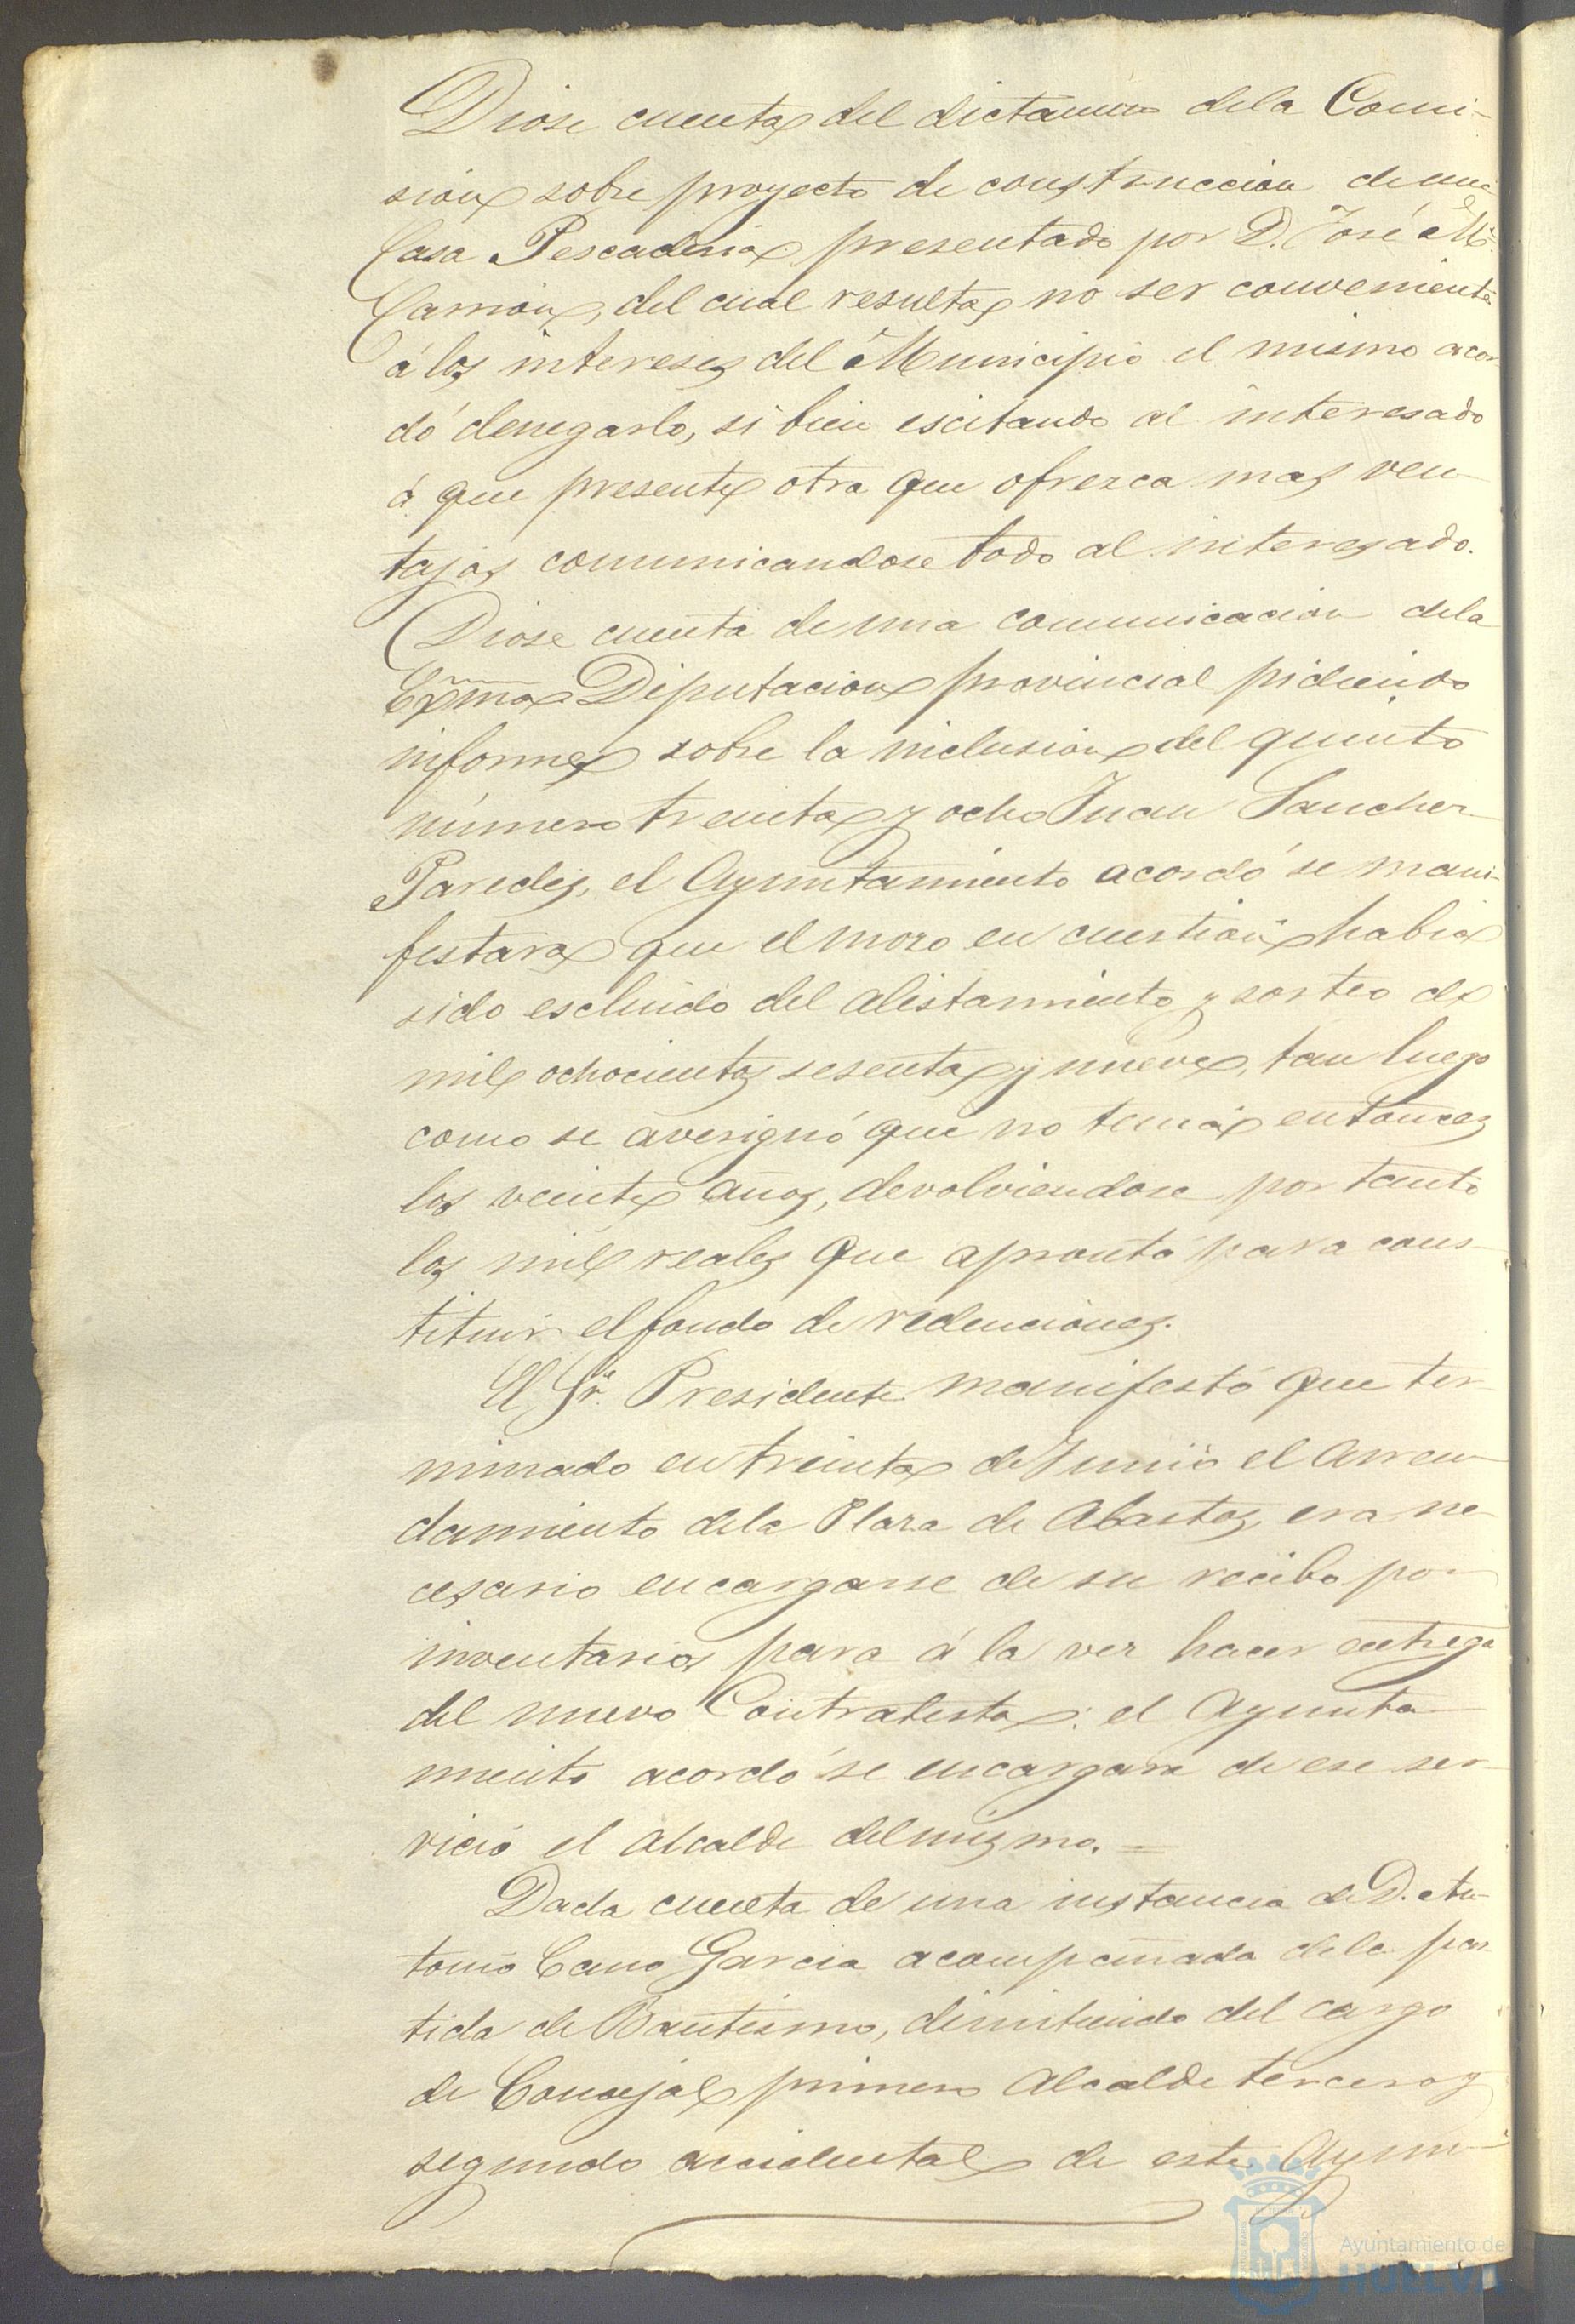 Diose cuenta del dictamen dela Comi-
sion sobre proyecto de construccion de una
Casa Pescaderia presentado por D. José Mª
Carrion, del cual resulta no ser conveniente
á los intereses del Municipio el mismo acor
dó denegarlo, si bien escitando al interesado
á que presente otra que ofrezca mas ven
tajas comunicandose todo al interesado.
Diose cuenta de una comunicacion dela
Exma Diputacion provincial pidiendo
informe sobre la inclusion del quinto
número treinta y ocho Juan Sanchez
Paredes, el Ayuntamiento acordó se mani-
festara que el mozo en cuestion habia
sido escluido del alistamiento y sorteo de
mil ochocientos sesenta y nueve, tan luego
como se averiguó que no tenia entonces
los veinte años, devolviendose por tanto
los mil reales que aprontó para cons-
tituir el fondo de redenciones.
El Sr. Presidente manifestó que ter
minado en treinta de Junio el arren
damiento dela Plaza de Abastos, era ne
cesario encargarse de su recibo por
inventario para á la vez hacer entrega
del nuevo Contratista; el Ayunta
miento acordó se encargara de ese ser
vicio el Alcalde del mismo. =
Dada cuenta de una instancia de D. An-
tonio Cano Garcia acompañada dela par
tida de Bautismo, dimitiendo del cargo
de Concejal primero Alcalde tercero y
segundo accidental de este Ayun-
Ayuntamiento de
HUELVA